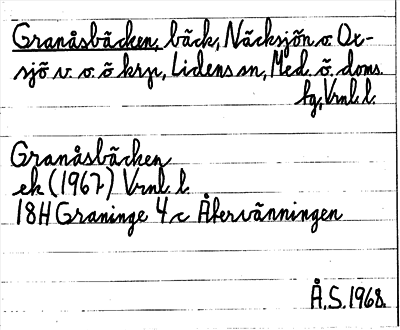 Granåsbäcken, bäck, Näcksjön o. Ox-
sjö v. o. ö krp, Lidens sn, Med. ö. doms.
tg, Vrnl. l.
Granåsbäcken
ek (1967) Vrnl. l.
18H Graninge 4c Återvänningen
Å.S. 1968.